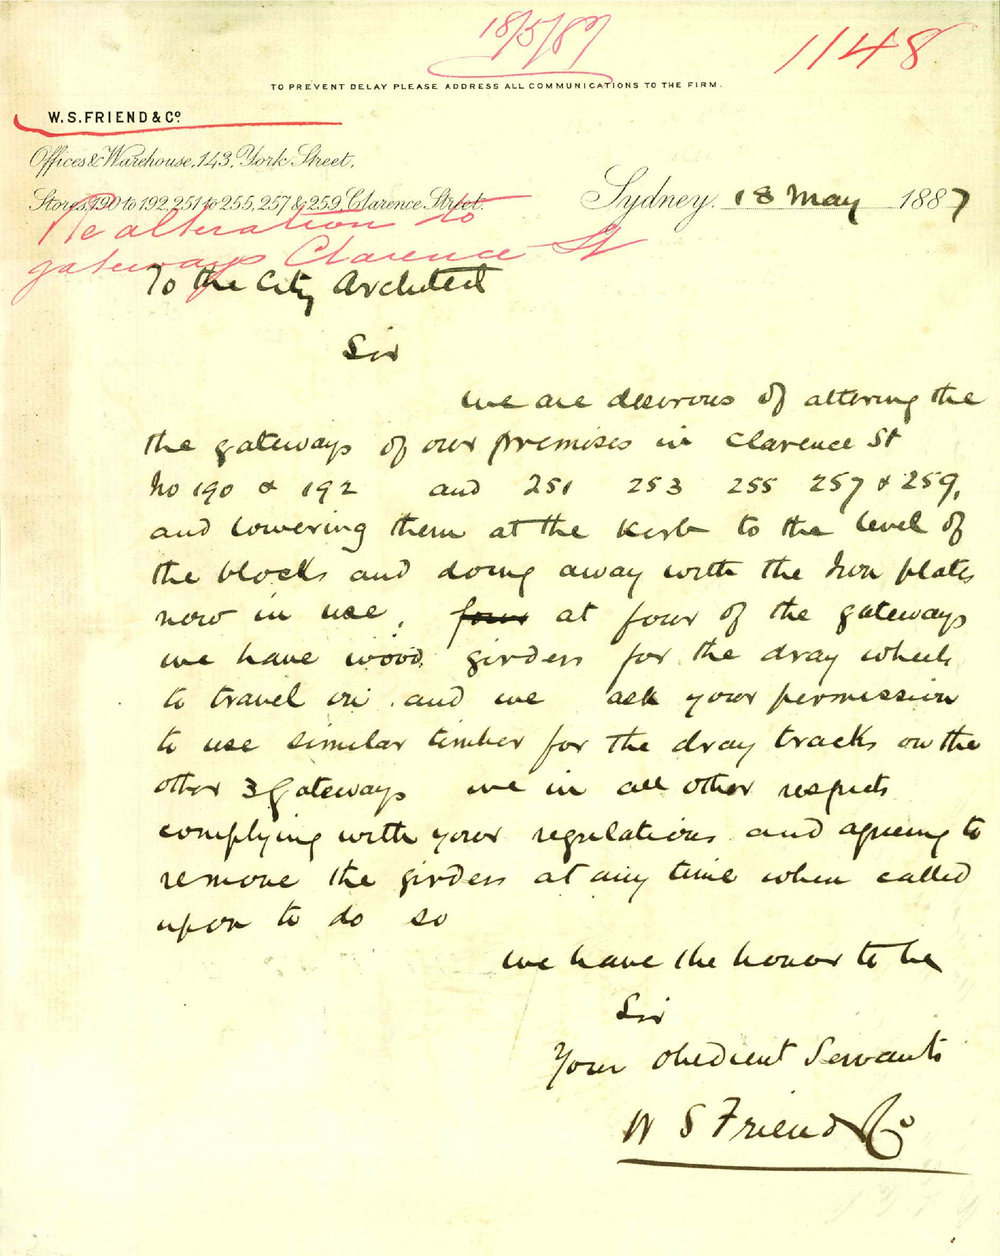 18/5/87
1148
TO PREVENT DELAY PLEASE ADDRESS ALL COMMUNICATIONS TO THE FIRM.
W.S. FRIEND & Co.
Offices & Warehouse, 143, York Street,
Stores, 190 to 192, 251 to 255, 257 & 259, Clarence Street.
Sydney, 18 May 1887
Re alteration to
gateways Clarence St
To the City Architect
Sir
we are desirous of altering the
the gateways of our premises in Clarence St
No 190 & 192 and 251 253 255 257 & 259,
and lowering them at the Kerb to the level of
the blocks and doing away with the Iron plates
now in use, four at four of the gateways
we have wood girders for the dray wheels
to travel on and we ask your permission
to use similar timber for the dray tracks on the
other 3 gateways we in all other respects
complying with your regulations and agreeing to
remove the girders at any time when called
upon to do so
we have the honor to be
Sir
Your obedient Servants
W S Friend & Co